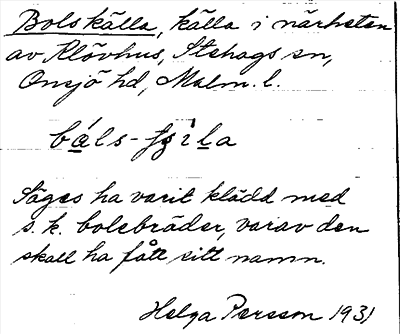 Bolskälla, källa i närheten
av Klövhus, Stehags sn,
Onsjö hd, Malm. l.
Säges ha varit klädd med
s. k. bolsbräder, varav den
skall ha fått sitt namn.
Helga Persson 1931